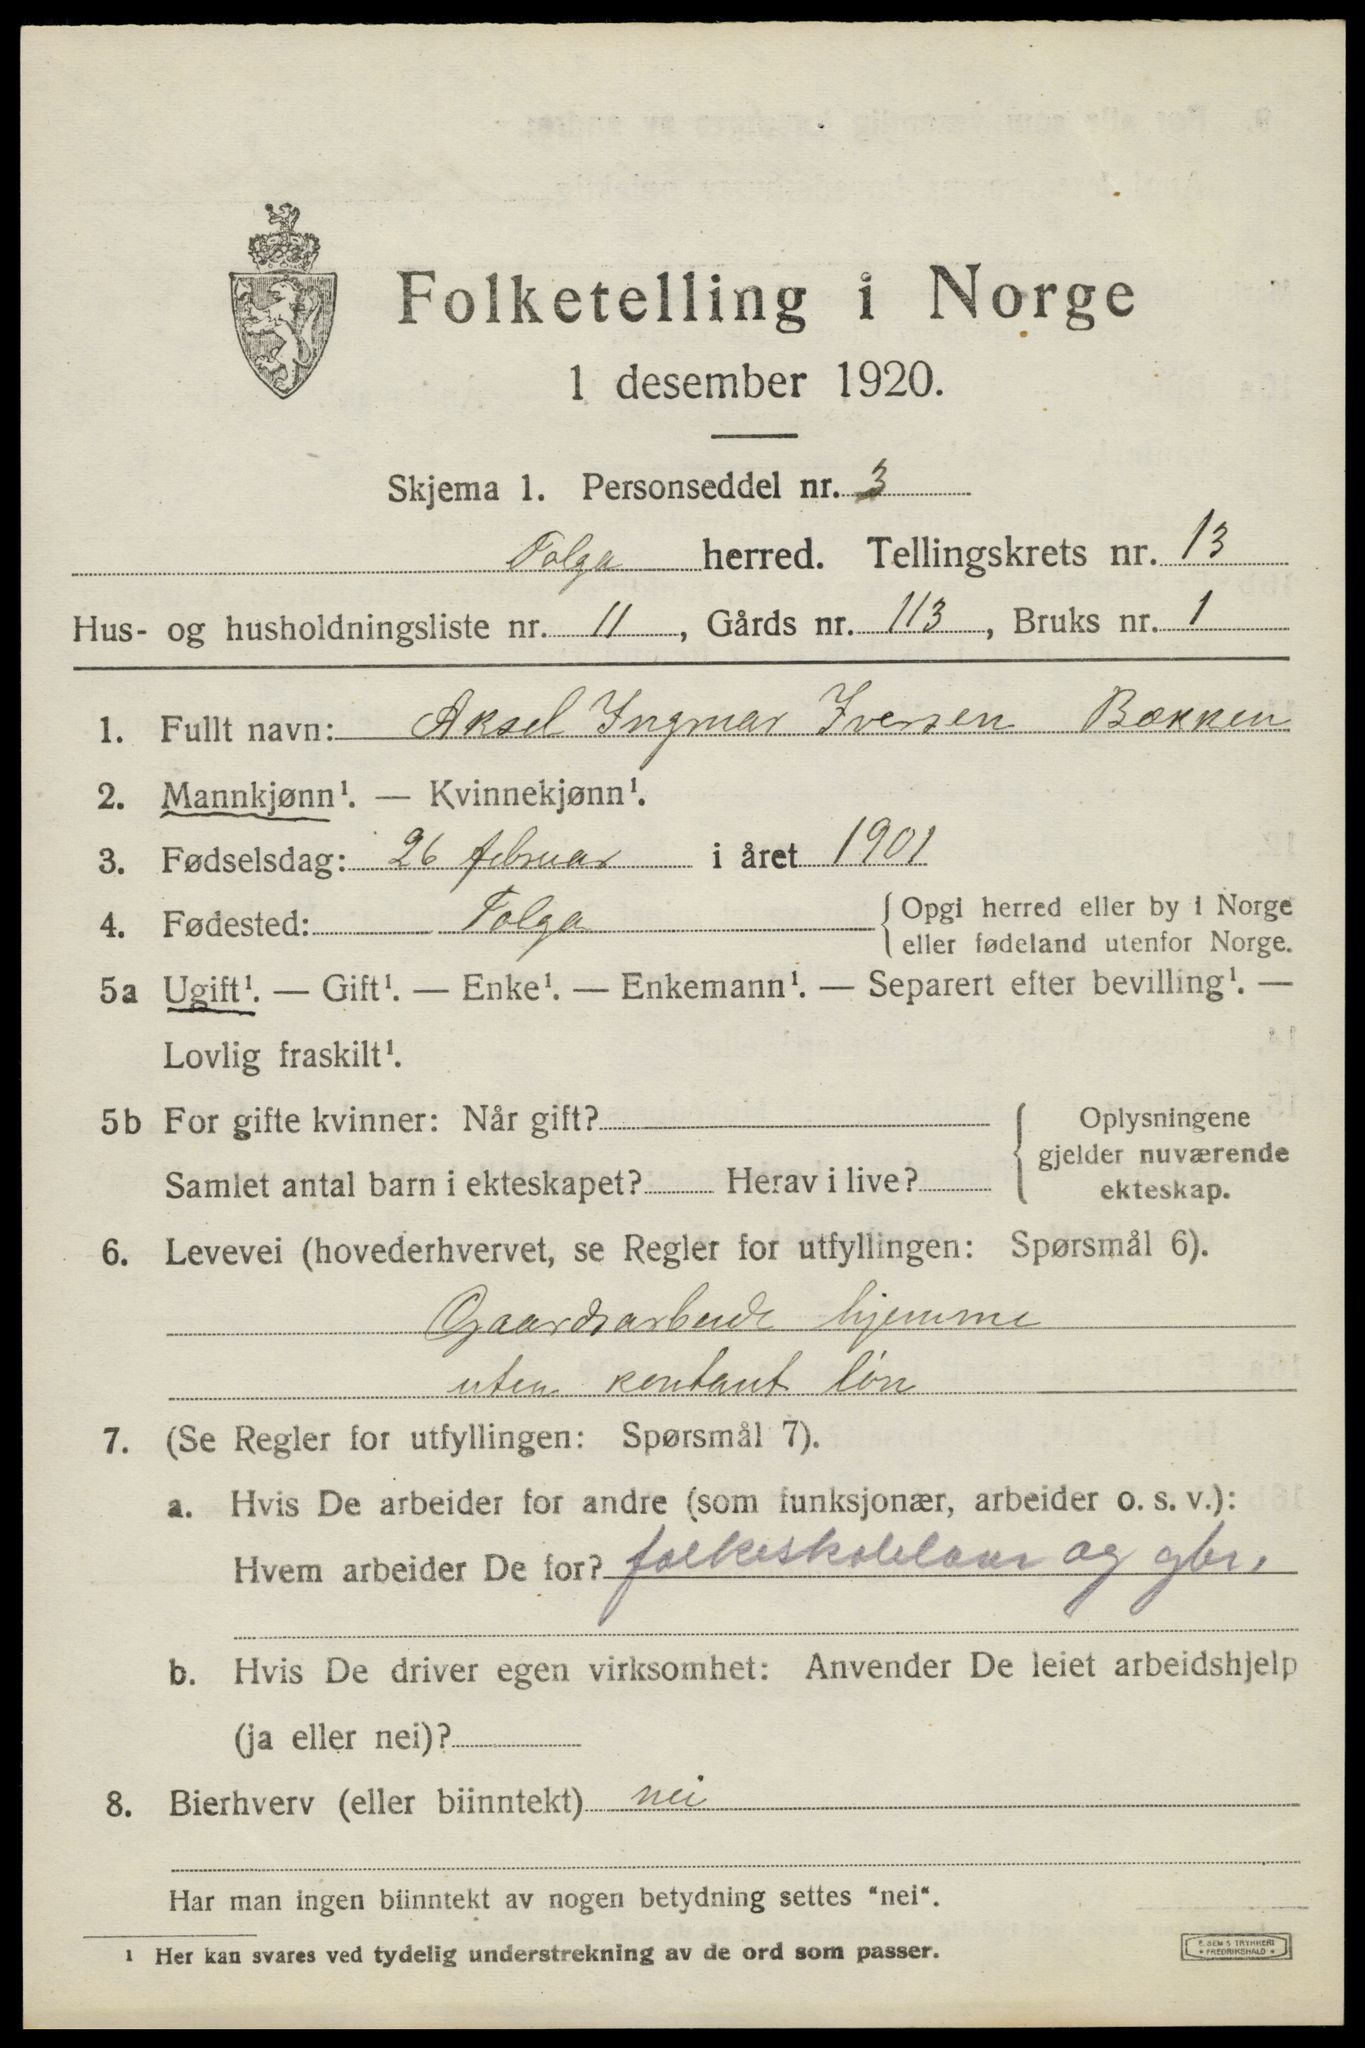 Folketelling i Norge
1 desember 1920.
Skjema 1. Personseddel nr. 3
Tolga herred. Tellingskrets nr. 13
Hus- og husholdningsliste nr. 11, Gårds nr. 113, Bruks nr. 1
1. Fullt navn: Aksel Ingmar Iversen Bækken
2. Mannkjønn¹. — Kvinnekjønn¹.
3. Fødselsdag: 26 februar i året 1901
4. Fødested: Tolga { Opgi herred eller by i Norge
eller fødeland utenfor Norge.
5a Ugift¹. — Gift¹. — Enke¹. — Enkemann¹. — Separert efter bevilling¹. —
Lovlig fraskilt¹.
5b For gifte kvinner: Når gift?
Samlet antal barn i ekteskapet? Herav i live?
{ Oplysningene
gjelder nuværende
ekteskap.
6. Levevei (hovederhvervet, se Regler for utfyllingen: Spørsmål 6).
Gaardsarbeide hjemme
uten kontant løn
7. (Se Regler for utfyllingen: Spørsmål 7).
a. Hvis De arbeider for andre (som funksjonær, arbeider o. s. v.):
Hvem arbeider De for? folkeskolelærer og gbr.
b. Hvis De driver egen virksomhet: Anvender De leiet arbeidshjelp
(ja eller nei)?
8. Bierhverv (eller biinntekt) nei
Har man ingen biinntekt av nogen betydning settes "nei".
¹ Her kan svares ved tydelig understrekning av de ord som passer.
E. SEM'S TRYKKERI
FREDRIKSHALD